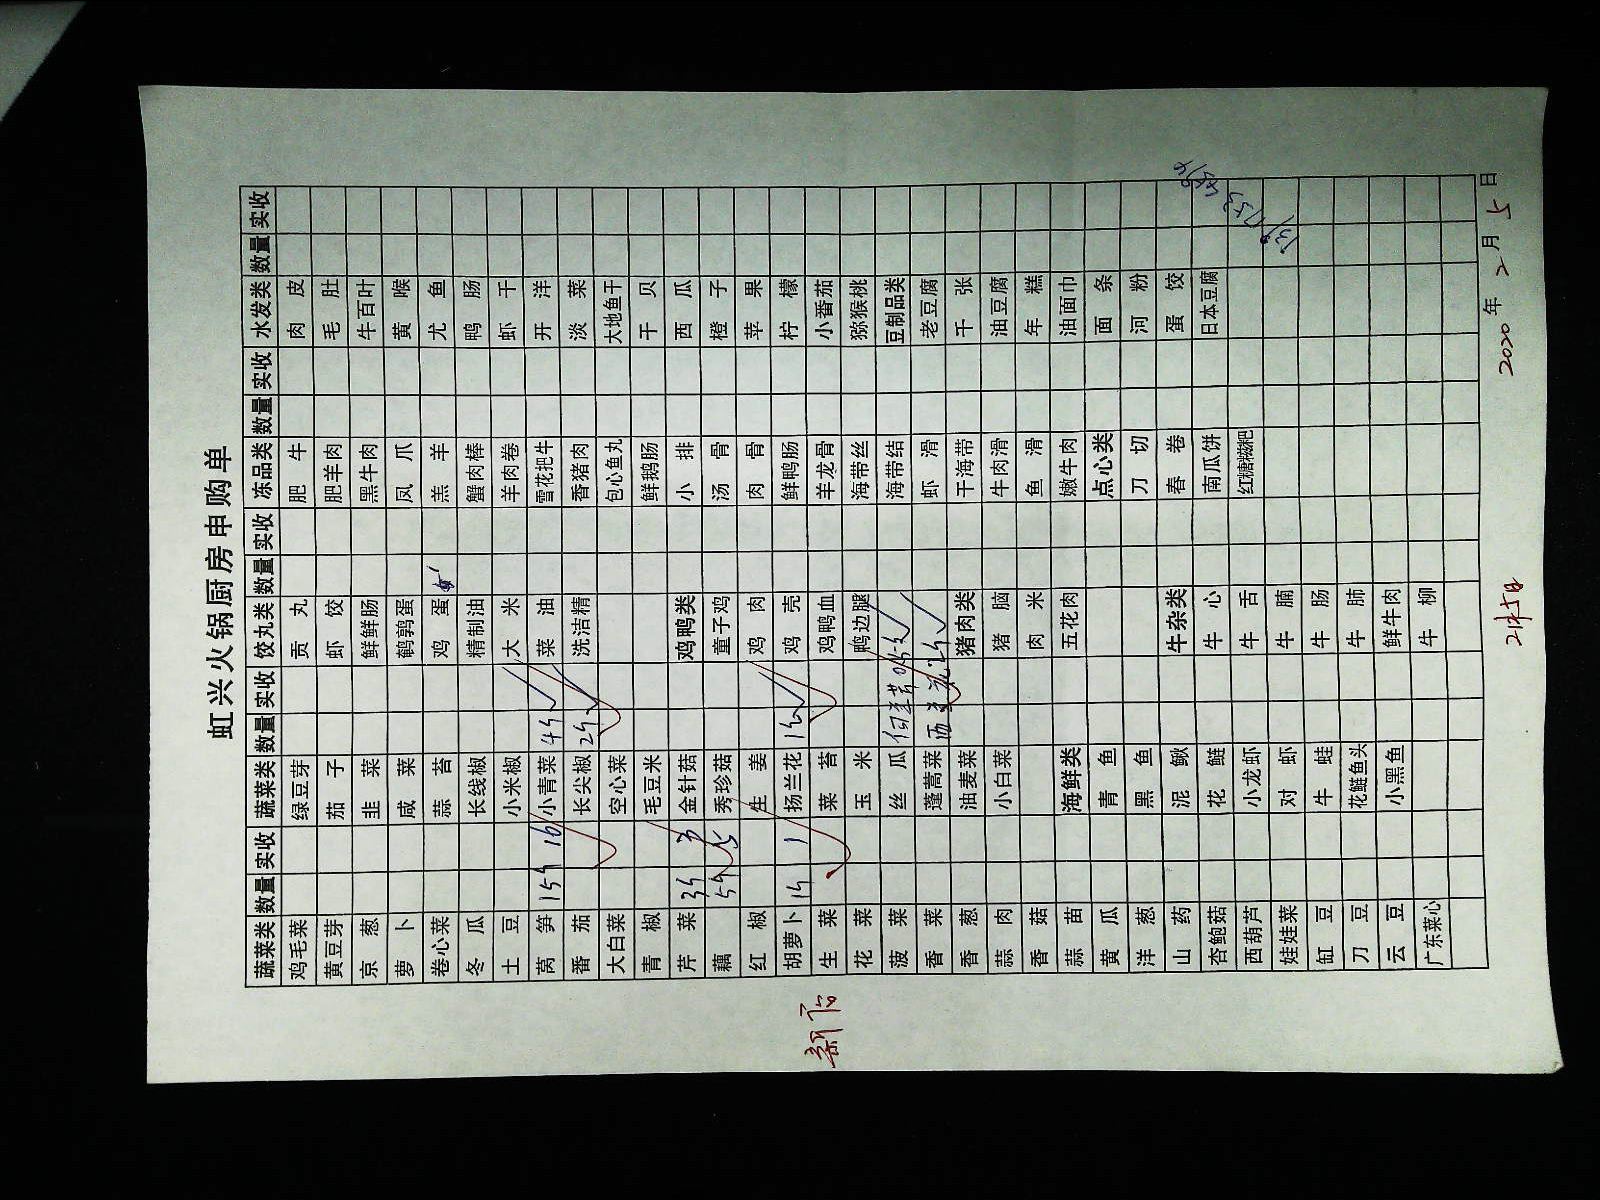 虹兴火锅厨房申购单
蔬菜类 数量 实收 蔬菜类 数量 实收 饺丸类 数量 实收 冻品类 数量 实收 水发类 数量 实收
鸡毛菜 绿豆芽 贡丸 肥牛 肉皮
黄豆芽 茄子 虾饺 肥羊肉 毛肚
京葱 韭菜 鲜鲜肠 黑牛肉 牛百叶
萝卜 咸菜 鹌鹑蛋 凤爪 黄喉
卷心菜 蒜苔 鸡蛋 羔羊 尤鱼
冬瓜 长线椒 精制油 蟹肉棒 鸭肠
土豆 小米椒 大米 羊肉卷 虾干
莴笋 15斤 16 小青菜 4斤 菜油 雪花把牛 开洋
番茄 长尖椒 2斤 洗洁精 香猪肉 淡菜
大白菜 空心菜 包心鱼丸 大地鱼干
青椒 毛豆米 鲜鹅肠 干贝
芹菜 3斤 3 金针菇 鸡鸭类 小排 西瓜
藕 5斤 5 秀珍菇 童子鸡 汤骨 橙子
红椒 生姜 鸡肉 肉骨 苹果
胡萝卜 1斤 1 扬兰花 1斤 鸡壳 鲜鸭肠 柠檬
生菜 菜苔 鸡鸭血 羊龙骨 小番茄
花菜 玉米 鸭边腿 海带丝 猕猴桃
菠菜 丝瓜 海带结 豆制品类
香菜 蓬蒿菜 西兰花 2斤 虾滑 老豆腐
香葱 油麦菜 猪肉类 干海带 千张
蒜肉 小白菜 猪脑 牛肉滑 油豆腐
香菇 肉米 鱼滑 年糕
蒜苗 海鲜类 五花肉 嫩牛肉 油面巾
黄瓜 青鱼 点心类 面条
洋葱 黑鱼 刀切 河粉
山药 泥鳅 牛杂类 春卷 蛋饺
杏鲍菇 花鲢 牛心 南瓜饼 日本豆腐
西葫芦 小龙虾 牛舌 红糖糍粑
娃娃菜 对虾 牛腩
缸豆 牛蛙 牛肠
刀豆 花鲢鱼头 牛肺
云豆 小黑鱼 鲜牛肉
广东菜心 牛柳
2020年2月5日
2月5日